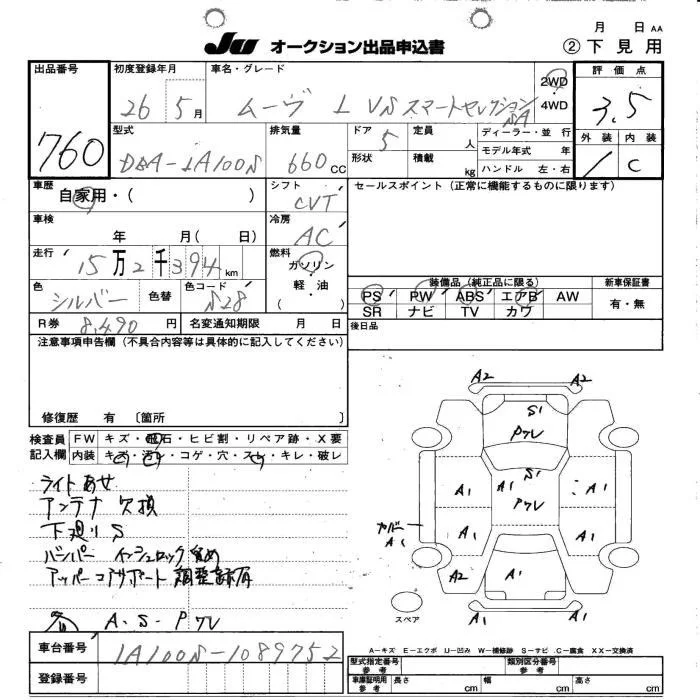 月 日 AA
Ju オークション出品申込書
② 下見用
出品番号 初度登録年月 車名・グレード 評価点
760
26 5月
ムーヴ L VS スマートセレクション SA
2WD
4WD
3.5
型式 排気量 ドア 定員 ディーラー・並行 外装 内装
DBA-LA100S 660 CC 5 人
形状 積載 kg
モデル年式 年
ハンドル 左・右
1 C
車歴 シフト セールスポイント(正常に機能するものに限ります)
自家用・( ) CVT
車検 冷房
年 月( 日) AC
走行 燃料
15万2千394km ガソリン・軽油・( )
装備品(純正品に限る) 新車保証書
色 色替 色コード
シルバー S28
PS PW ABS エアB AW 有・無
SR ナビ TV カワ
R券 8,490円 名変通知期限 月 日
後日品
注意事項申告欄(不具合内容等は具体的に記入してください)
修復歴 有 〔箇所 〕
検査員 FW キズ・飛石・ヒビ割・リペア跡・X要
記入欄 内装 キズ・汚れ・コゲ・穴・スレ・キレ・破レ
ライトあせ
アンテナ欠損
下廻りS
バンパー
A.S.Pワレ
A2 A2
S1
Pワレ
A1 S1
A1 Pワレ A1
A1 A1
カバー
A1
A2 A1
A1 A1
スペア
A-キズ E-エクボ U-凹み W-補修跡 S-サビ C-腐食 XX-交換済
車台番号 LA100S-1089752
登録番号
型式指定番号 参考 類別区分番号 参考
車庫証明用 参考 長さ cm 幅 cm 高さ cm